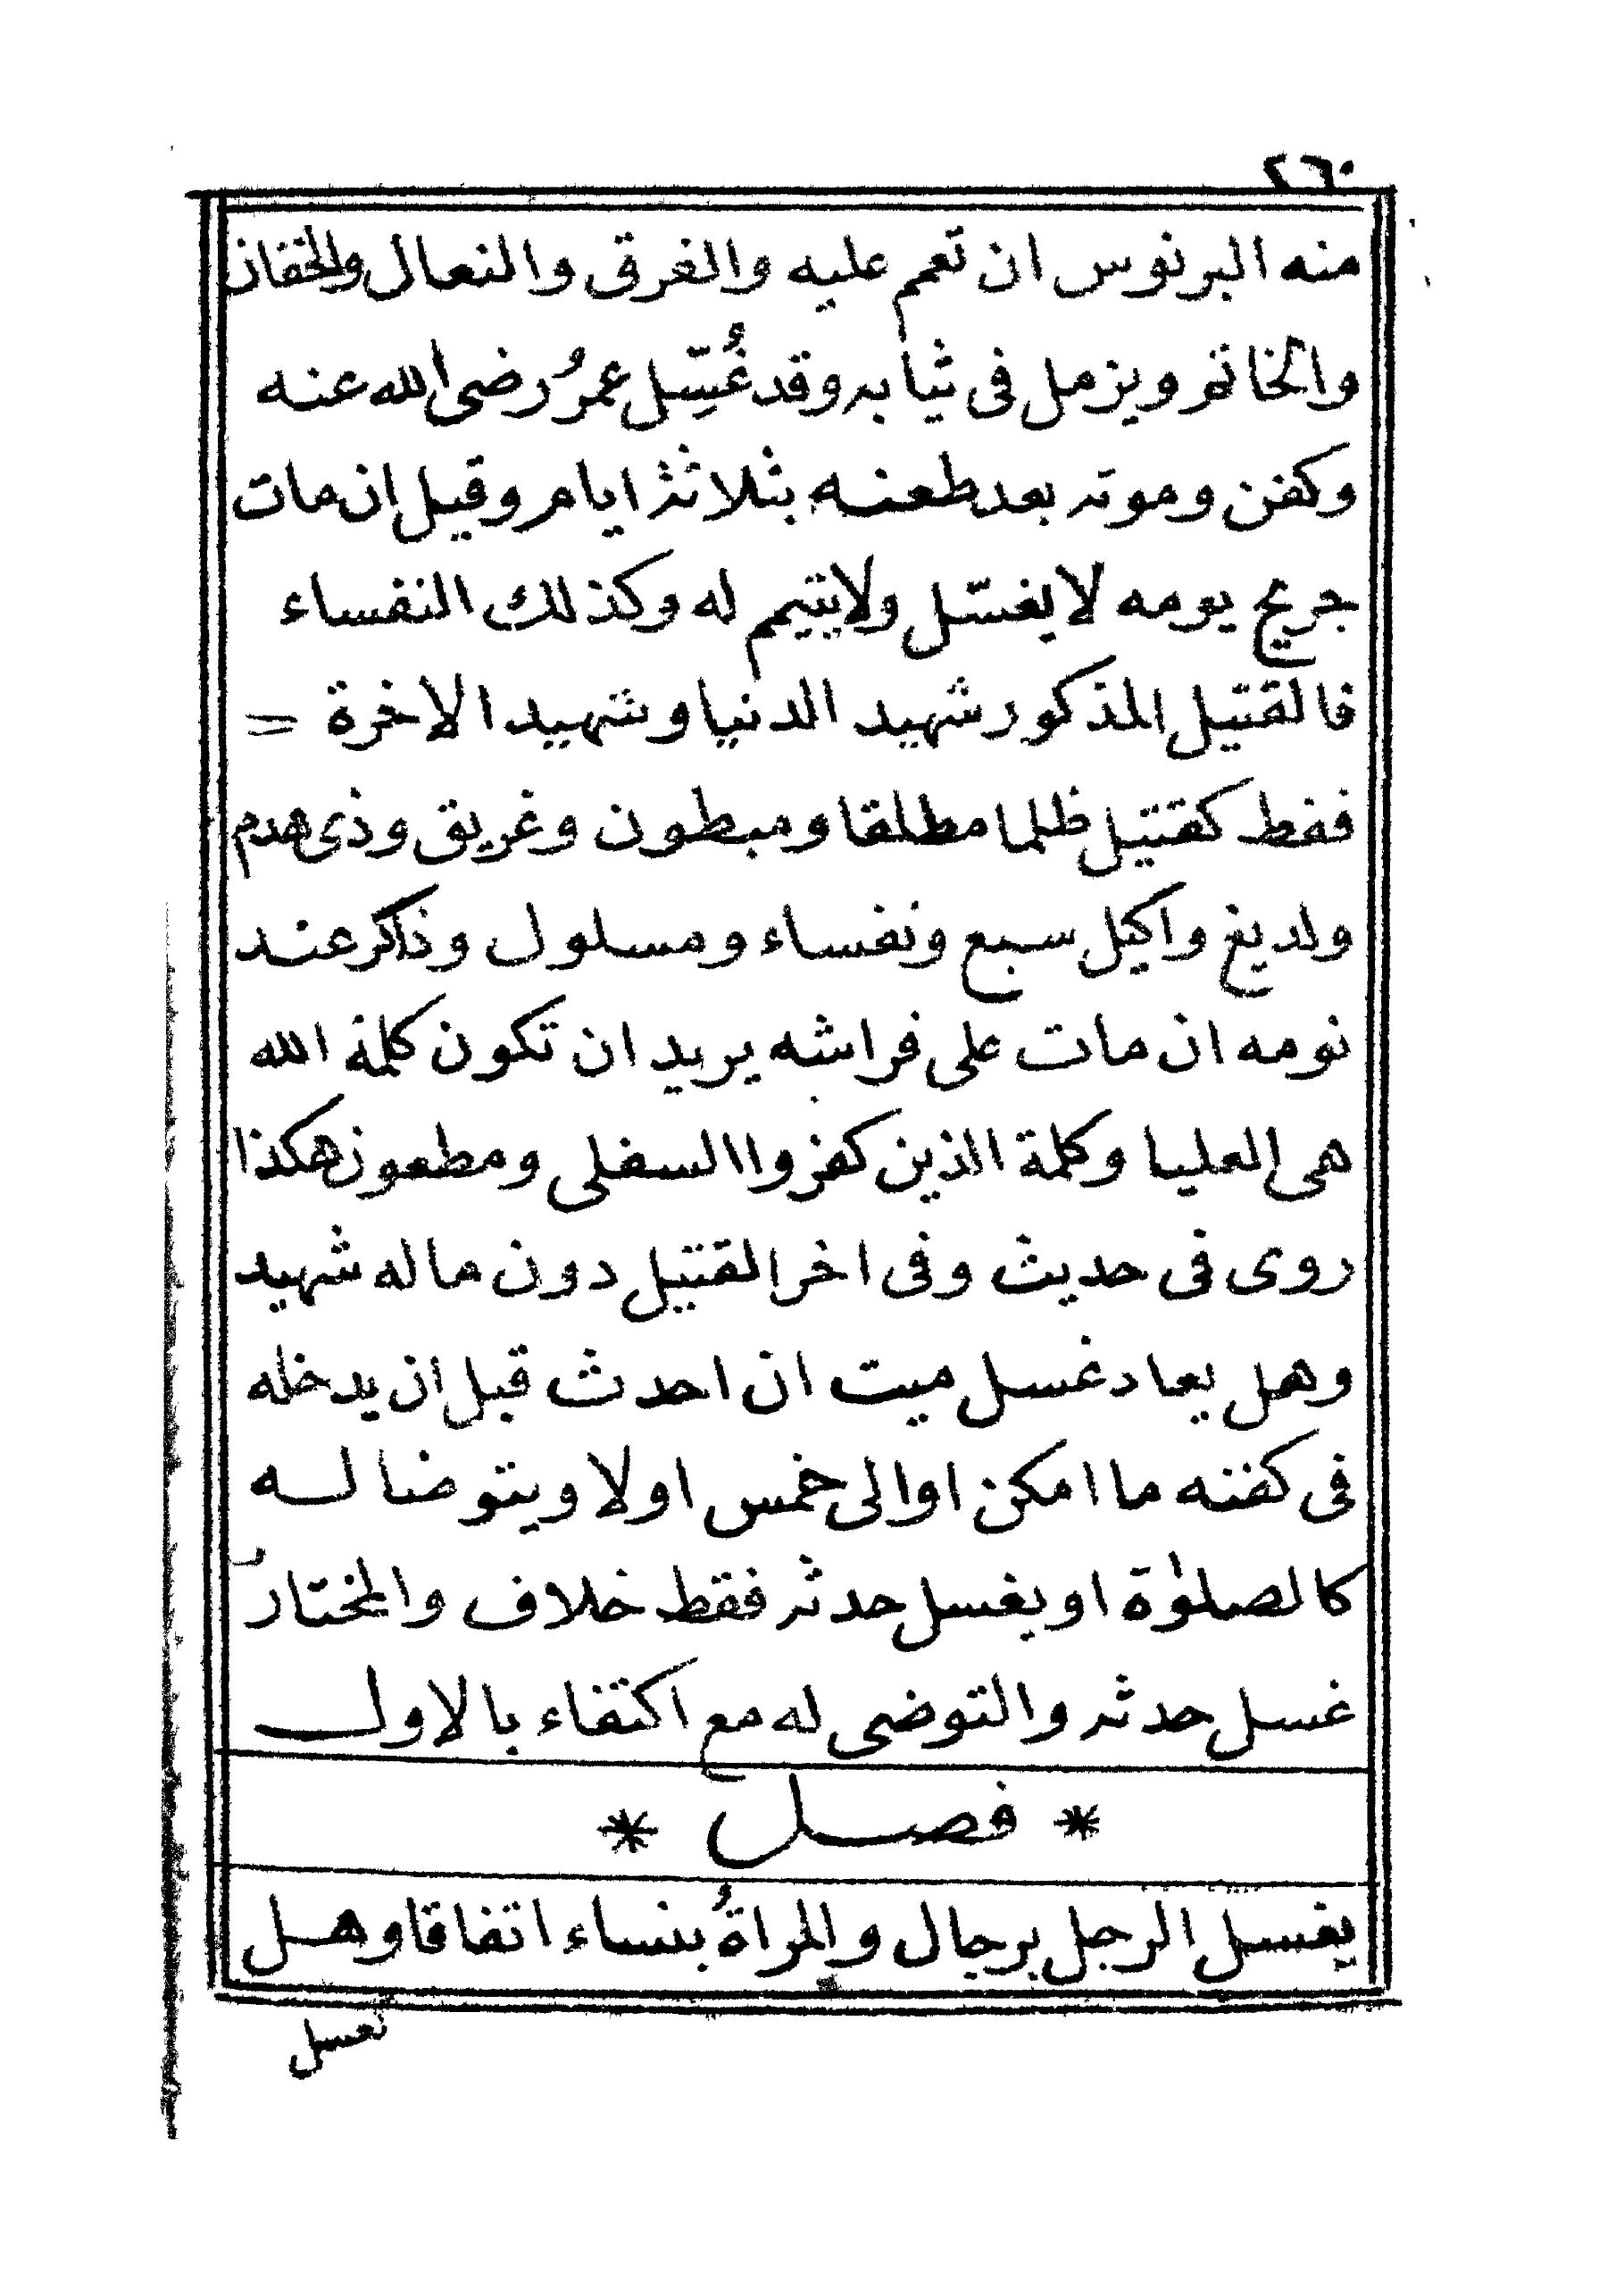 ٢٦٠
منه البرنوس ان تعمم عليه والغرقى والنعال والخفان
والخاتم ويزمل فى ثيابه وقد غُسِّل عمرُ رضى الله عنه
وكفن وموته بعد طعنه بثلاثة ايام وقيل ان مات
جريح يومه لا يغسّل ولا يتيمم له وكذلك النفساء
فالقتيل المذكور شهيد الدنيا وشهيد الاخرة =
فقط كقتيل ظلما مطلقا ومبطون وغريق وذى هدم
ولديغ واكيل سبع ونفساء ومسلول وذاكر عند
نومه ان مات على فراشه يريد ان تكون كلمة الله
هى العليا وكلمة الذين كفروا السفلى ومطعون هكذا
روى فى حديث وفى اخر القتيل دون ماله شهيد
وهل يعاد غسل ميت ان احدث قبل ان يدخله
فى كفنه ما امكن او الى خمس او لا ويتوضا له
كالصلوٰة او يغسل حدثه فقط خلاف والمختار
غسل حدثه والتوضى له مع اكتفاء بالاول
* فصل *
يغسل الرجل برجال والمراةُ بنساء اتفاقا وهل
تغسل